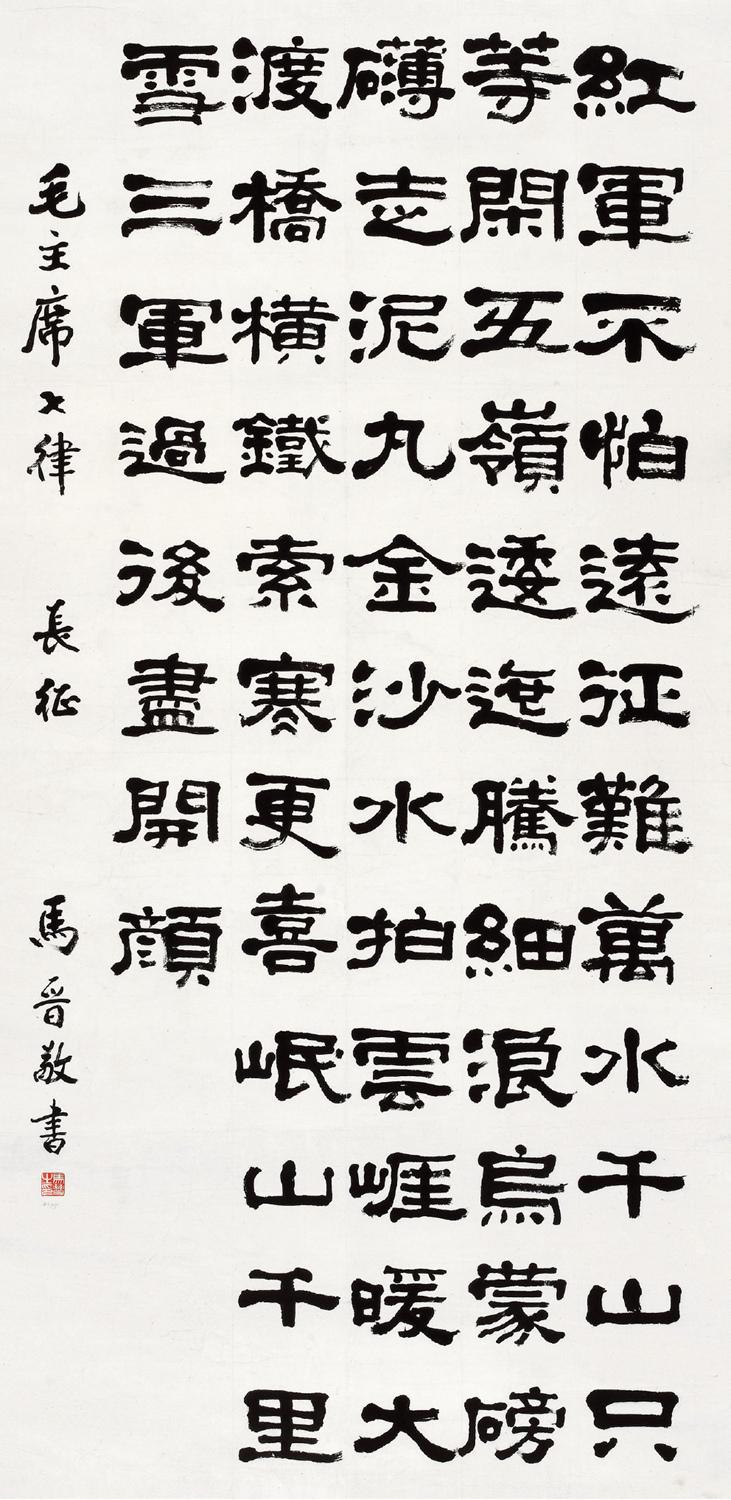 紅軍不怕遠征難萬水千山只
等閑五嶺逶迤騰細浪烏蒙磅
礴走泥丸金沙水拍雲崕暖大
渡橋橫鐵索寒更喜岷山千里
雪三軍過後盡開顏
毛主席七律 長征 馬晉敬書